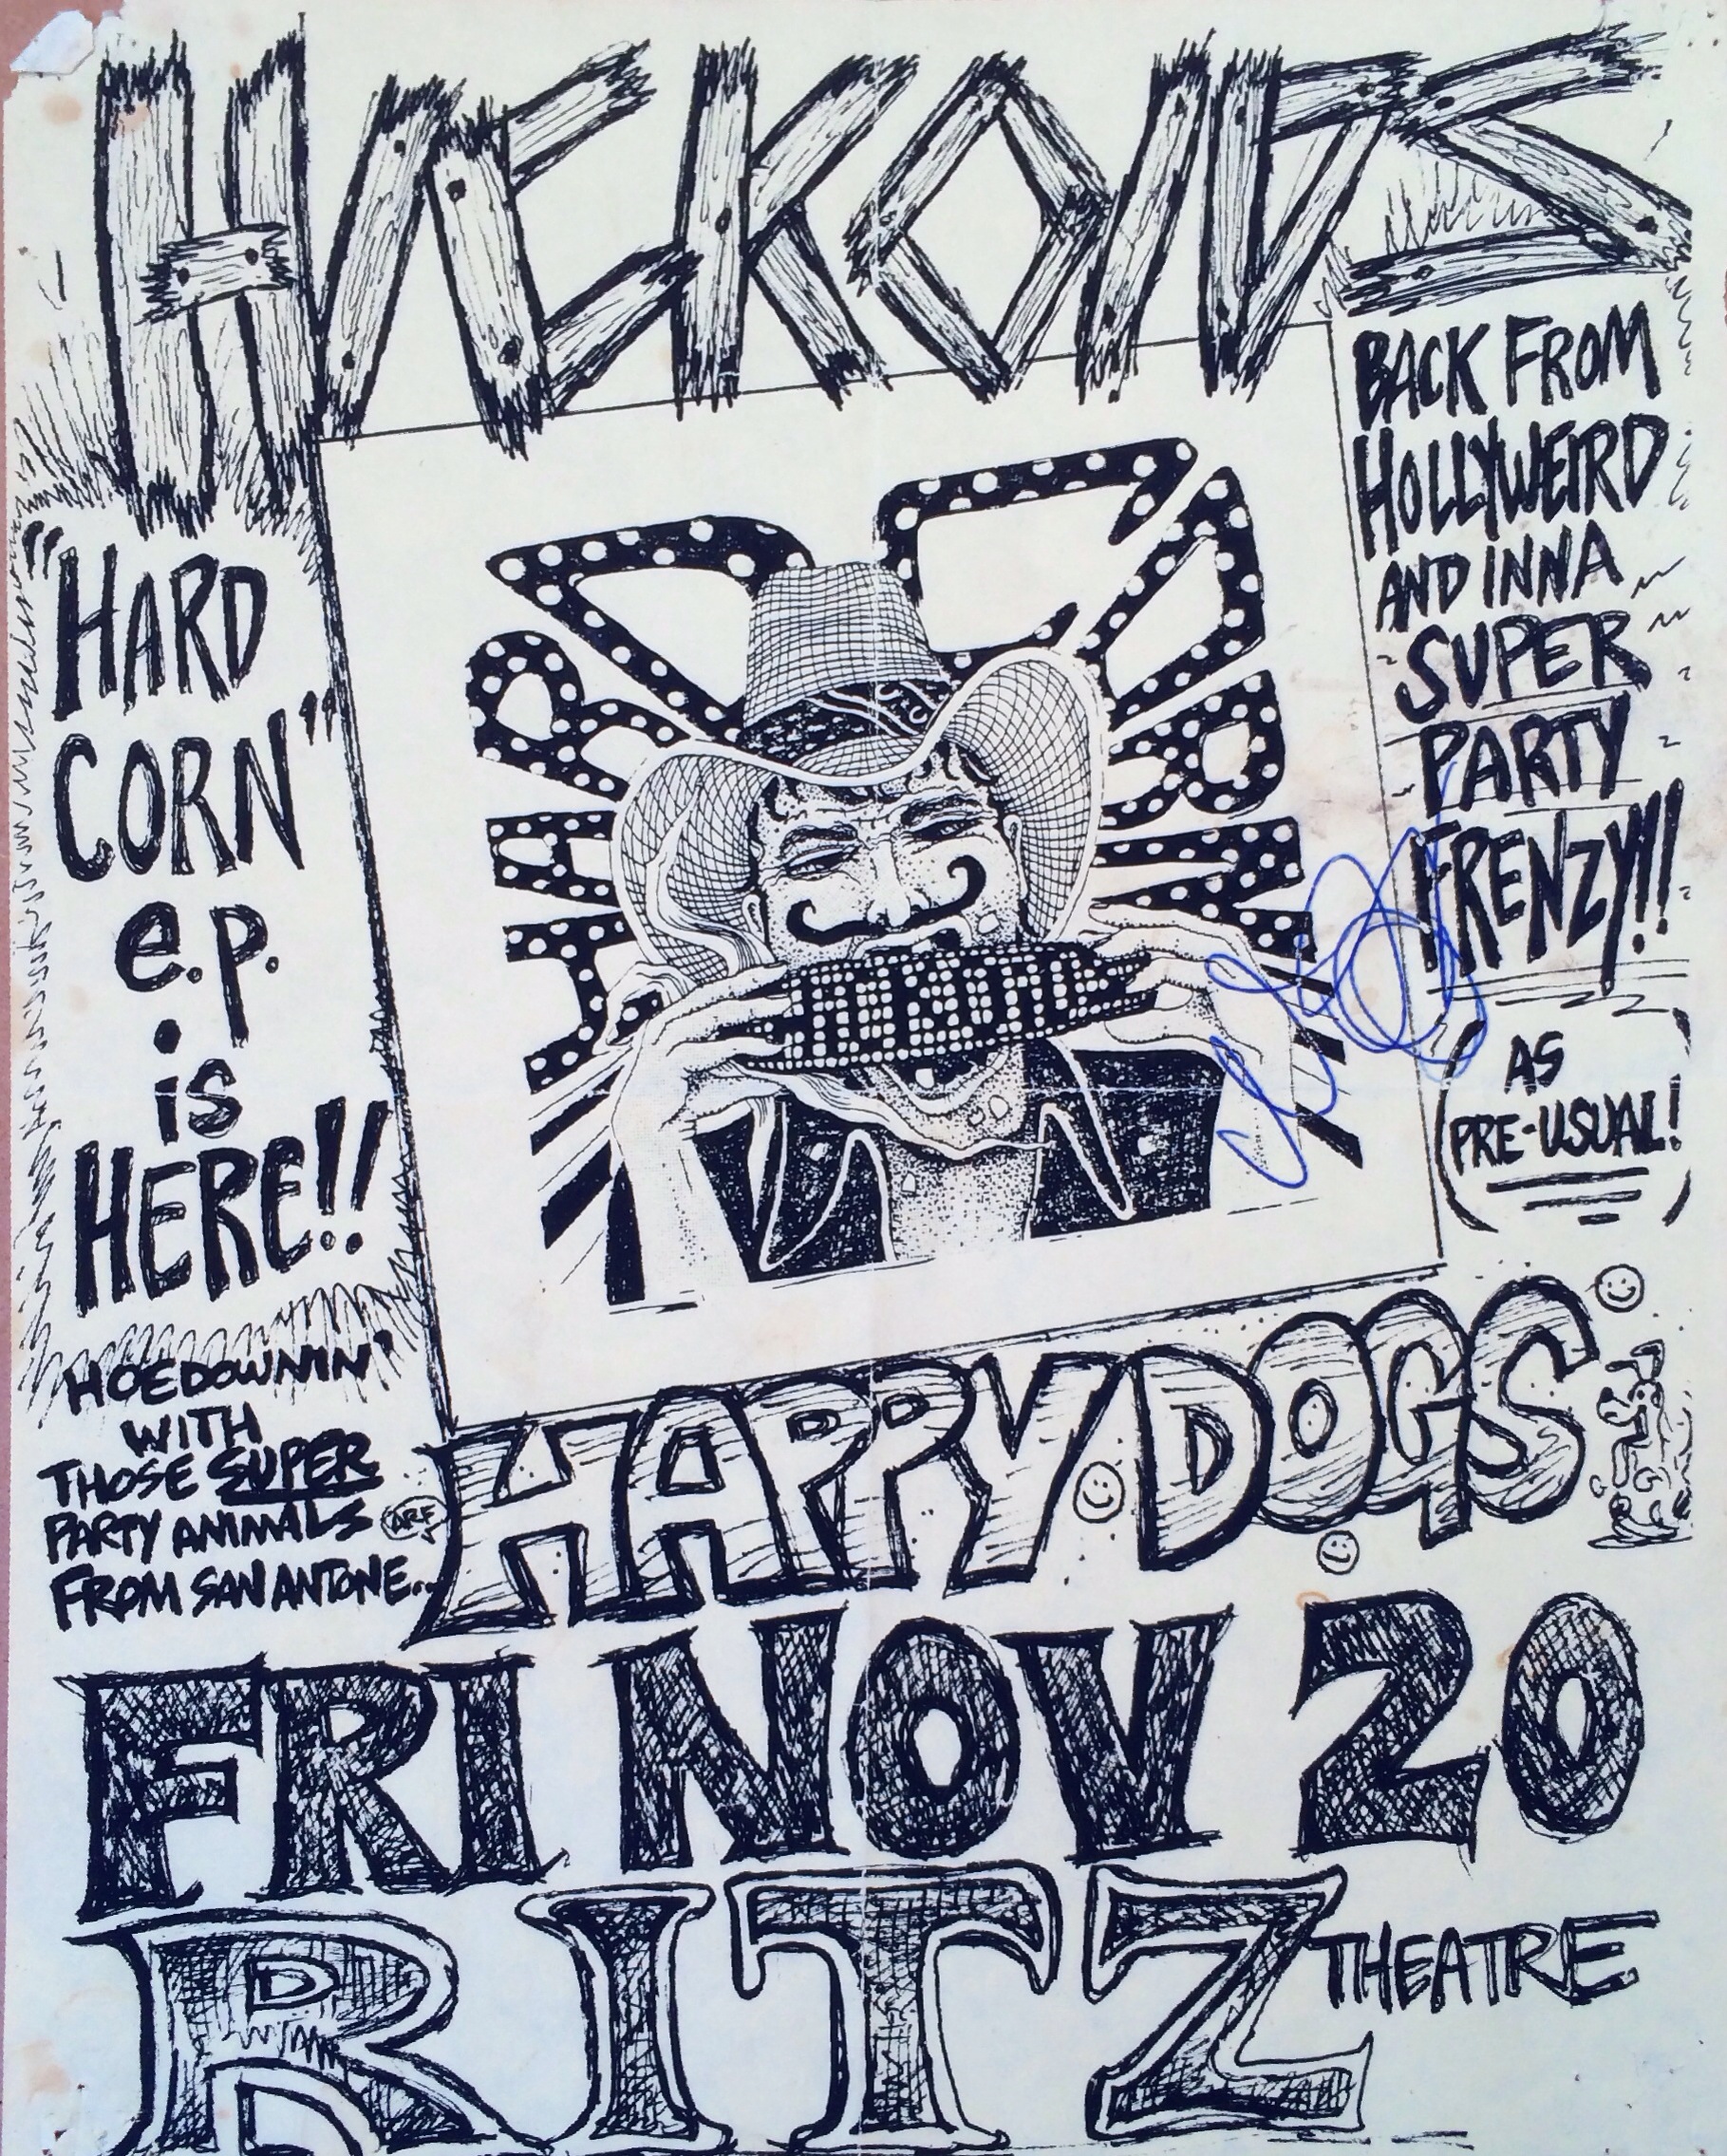 HICKOIDS
BACK FROM
HOLLYWEIRD
AND INNA
SUPER
PARTY
FRENZY!!!
(AS
PRE-USUAL!)
"HARD
CORN"
e.p.
is
HERE!!
HARD CORN
HOEDOWNIN'
WITH
THOSE SUPER
PARTY ANIMALS
FROM SAN ANTONE..
ARF
HAPPY DOGS
FRI NOV 20
RITZ THEATRE